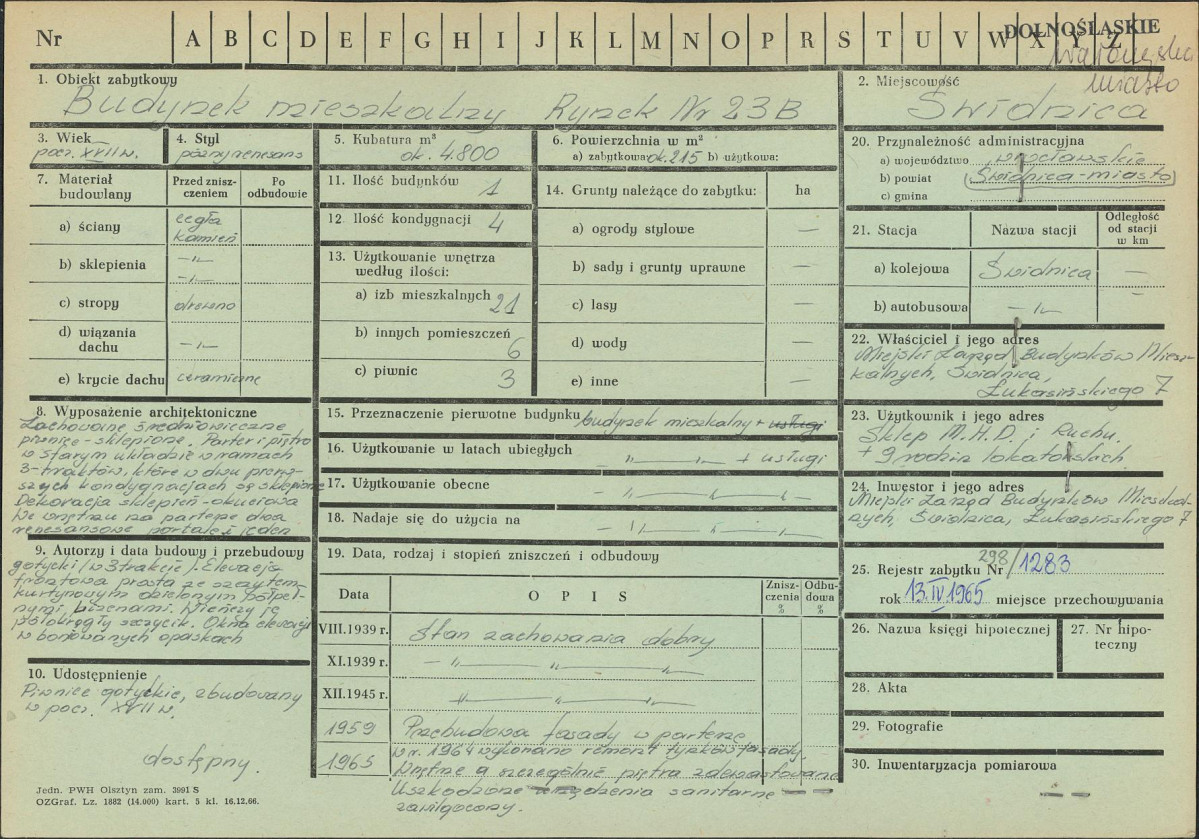 Nr A B C D E F G H I J K L M N O P R S T U V W X Y Z
DOLNOŚLĄSKIE
miasto
1. Obiekt zabytkowy
Budynek mieszkalny Rynek Nr 23B
2. Miejscowość
Świdnica
3. Wiek
pocz. XVII w.
4. Styl
późny renesans
5. Kubatura m³
ok. 4.800
6. Powierzchnia w m²
a) zabytkowa: ok. 215 b) użytkowa:
7. Materiał budowlany
Przed znisz-
czeniem
Po
odbudowie
a) ściany cegła
kamień
b) sklepienia -"-
-"-
c) stropy drewno
d) wiązania
dachu -"-
e) krycie dachu ceramiczne
8. Wyposażenie architektoniczne
Zachowane średniowieczne
piwnice - sklepione. Parter i piętro
w starym układzie w ramach
3-traktów, które w dwu pierw-
szych kondygnacjach są sklepione
Dekoracja sklepień - okuciowa
We wnętrzu na parterze dwa
renesansowe portale i jeden
9. Autorzy i data budowy i przebudowy
gotycki /w 3 trakcie/. Elewacja
frontowa prosta ze szczytem
kurtynowym dzielonym półpeł-
nymi, wieńczy ją
półokrągły szczycik. Okna elewacji
w boniowanych opaskach
10. Udostępnienie
Piwnice gotyckie, zbudowany
w pocz. XVII w.
dostępny.
Jedn. PWH Olsztyn zam. 3991 S
OZGraf. Lz. 1882 (14.000) kart. 5 kl. 16.12.66.
11. Ilość budynków 1
12. Ilość kondygnacji 4
13. Użytkowanie wnętrza
według ilości:
a) izb mieszkalnych 21
b) innych pomieszczeń 6
c) piwnic 3
14. Grunty należące do zabytku: ha
a) ogrody stylowe —
b) sady i grunty uprawne —
c) lasy —
d) wody —
e) inne —
15. Przeznaczenie pierwotne budynku budynek mieszkalny + usługi
16. Użytkowanie w latach ubiegłych -"- + usługi
17. Użytkowanie obecne -"-
18. Nadaje się do użycia na -"-
19. Data, rodzaj i stopień zniszczeń i odbudowy
Data
OPIS
Znisz-
czenia
%
Odbu-
dowa
%
VIII.1939 r. Stan zachowania dobry
XI.1939 r. -"-
XII.1945 r. -"-
1959 Przebudowa fasady w parterze
1965 W r. 1964 wykonano remont tynków fasady.
Wnętrze a szczególnie piętra zdewastowane
Uszkodzone urządzenia sanitarne
zawilgocony.
20. Przynależność administracyjna
a) województwo wrocławskie
b) powiat Świdnica-miasto
c) gmina
21. Stacja
Nazwa stacji
Odległość
od stacji
w km
a) kolejowa Świdnica —
b) autobusowa -"- —
22. Właściciel i jego adres
Miejski Zarząd Budynków Miesz-
kalnych, Świdnica,
Łukasińskiego 7
23. Użytkownik i jego adres
Sklep M.H.D. i Ruchu.
+ 9 rodzin lokatorskich
24. Inwestor i jego adres
Miejski Zarząd Budynków Mieszkal-
nych, Świdnica, Łukasińskiego 7
25. Rejestr zabytku Nr 298/1283
rok 13.IV.1965 miejsce przechowywania
26. Nazwa księgi hipotecznej
27. Nr hipo-
teczny
28. Akta
29. Fotografie
30. Inwentaryzacja pomiarowa